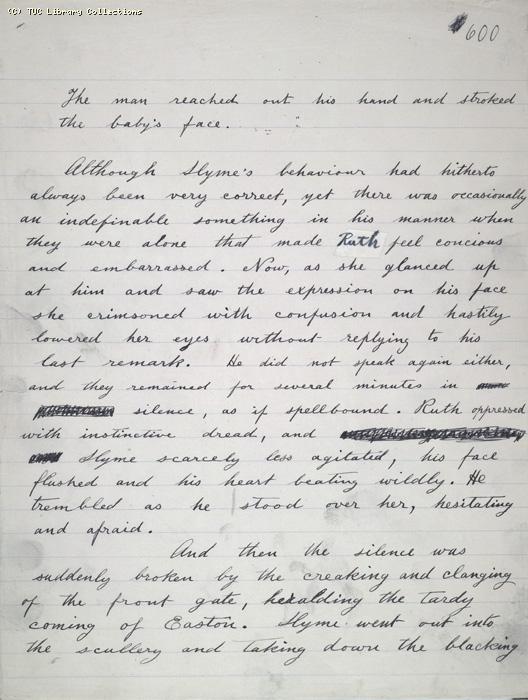 (C) TUC Library Collections
600
The man reached out his hand and stroked
the baby's face.
Although Slyme's behaviour had hitherto
always been very correct, yet there was occasionally
an indefinable something in his manner when
they were alone that made Ruth feel concious
and embarrassed. Now, as she glanced up
at him and saw the expression on his face
she crimsoned with confusion and hastily
lowered her eyes without replying to his
last remark. He did not speak again either,
and they remained for several minutes in
silence, as if spellbound. Ruth oppressed
with instinctive dread, and
Slyme scarcely less agitated, his face
flushed and his heart beating wildly. He
trembled as he stood over her, hesitating
and afraid.
And then the silence was
suddenly broken by the creaking and clanging
of the front gate, heralding the tardy
coming of Easton. Slyme went out into
the scullery and taking down the blacking